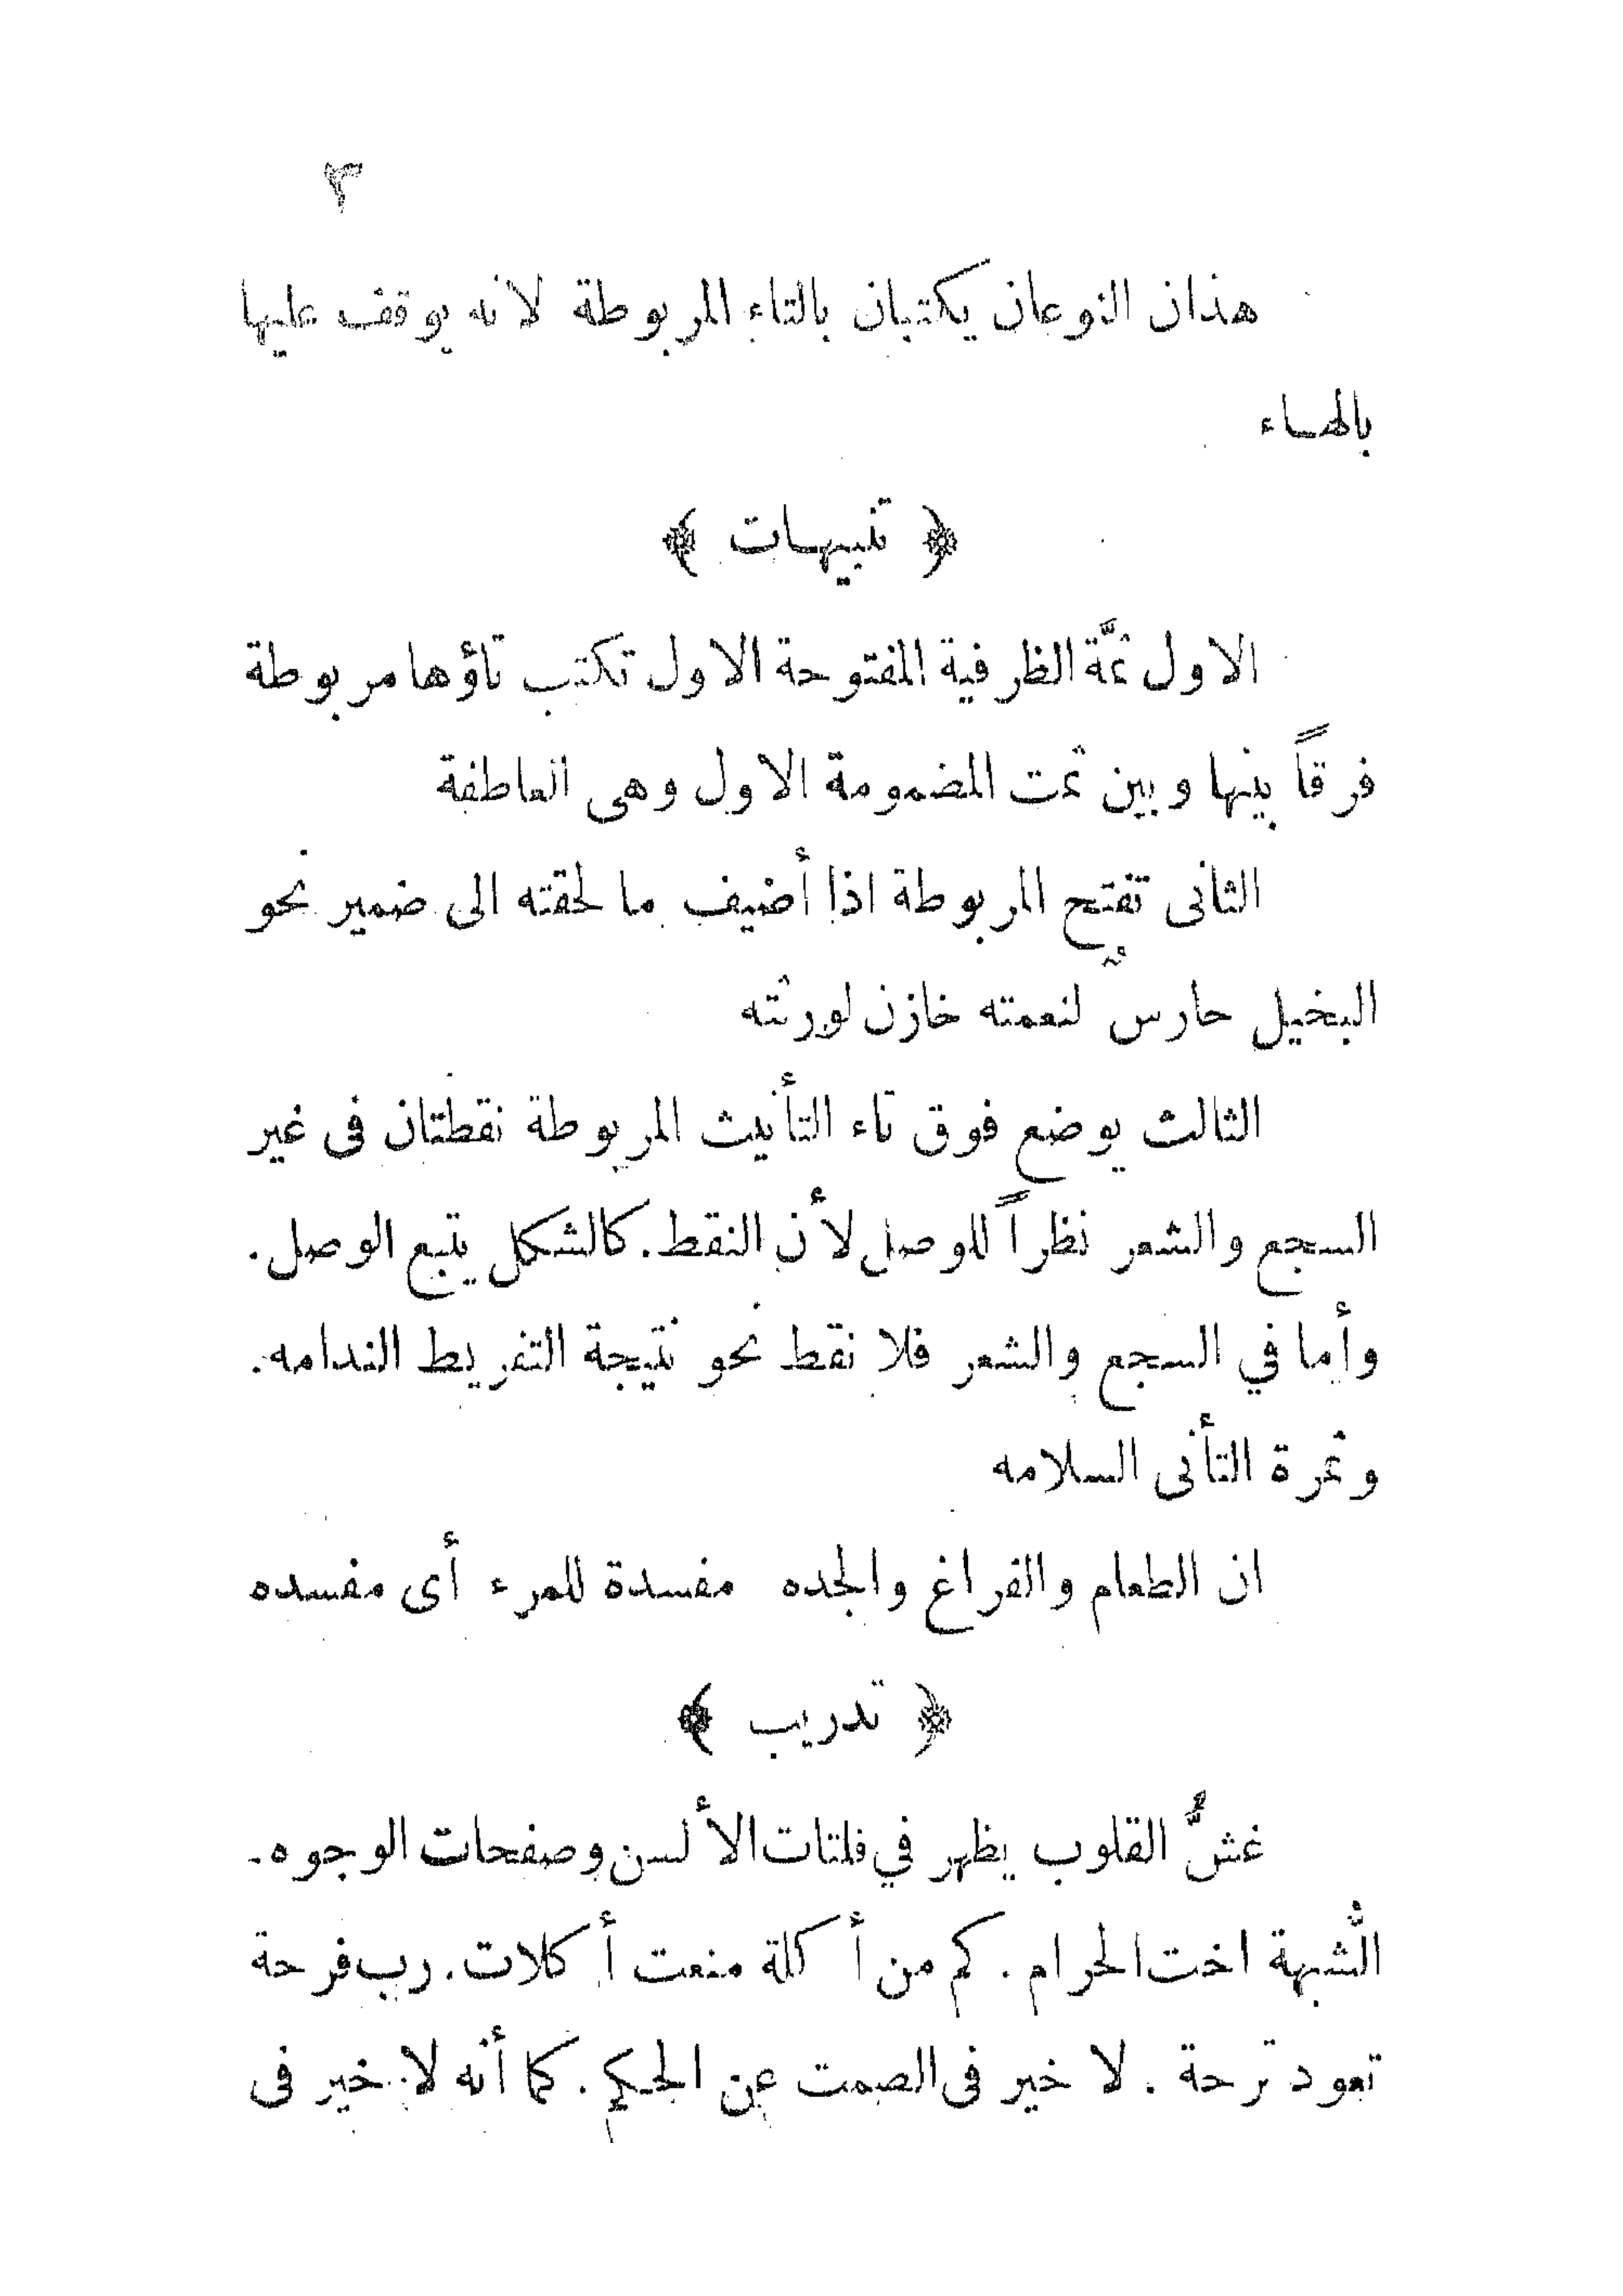 ٣
هذان النوعان يكتبان بالتاء المربوطة لانه يوقف عليها
بالهاء
﴿ تنبيهات ﴾
الاول ثمَّة الظرفية المفتوحة الاول تكتب تاؤها مربوطة
فرقاً بينها وبين ثمت المضمومة الاول وهى العاطفة
الثانى تفتح المربوطة اذا أضيف ما لحقته الى ضمير نحو
البخيل حارسٌ لنعمته خازن لورثته
الثالث يوضع فوق تاء التأنيث المربوطة نقطتان فى غير
السجع والشعر نظراً للوصل لأن النقط. كالشكل يتبع الوصل.
وأما في السجع والشعر فلا نقط نحو نتيجة التفريط الندامه.
وثمرة التأنى السلامه
ان الطعام والفراغ والجده مفسدة للمرء أى مفسده
﴿ تدريب ﴾
غشُّ القلوب يظهر في فلتات الألسن وصفحات الوجوه.
الشُّبهة اخت الحرام. كم من أكلة منعت أكلات. رب فرحة
تعود ترحة. لا خير فى الصمت عن الحكم. كما أنه لا خير فى